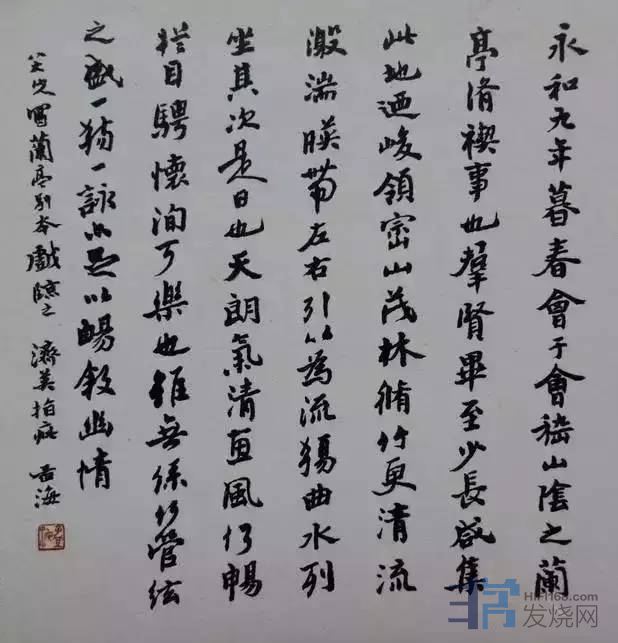 永和九年暮春會于會嵇山陰之蘭
亭脩禊事也羣賢畢至少長咸集
此地迺峻領崇山茂林脩竹更清流
激湍暎帶左右引以為流觴曲水列
坐其次是日也天朗氣清惠風和暢
娛目騁懷洵可樂也雖無絲竹管絃
之盛一觴一詠亦足以暢敘幽情
蘭亭別本戲臨之 濟英拍疵
HIFI168.com
发烧网